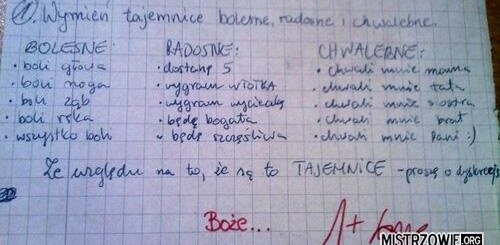 1. Wymień tajemnice bolesne, radosne i chwalebne.
BOLESNE: RADOSNE: CHWALEBNE:
• boli głowa • dostanę 5 • chwali mnie mama
• boli noga • wygram WIOTKA • chwali mnie tata
• boli ząb • wygram wycieczkę • chwali mnie siostra
• boli ręka • będę bogata • chwali mnie brat
• wszystko boli • będę szczęśliwa • chwali mnie Pani :)
Ze względu na to, że są to TAJEMNICE - proszę o dyskrecję
Boże... 1+
MISTRZOWIE.ORG